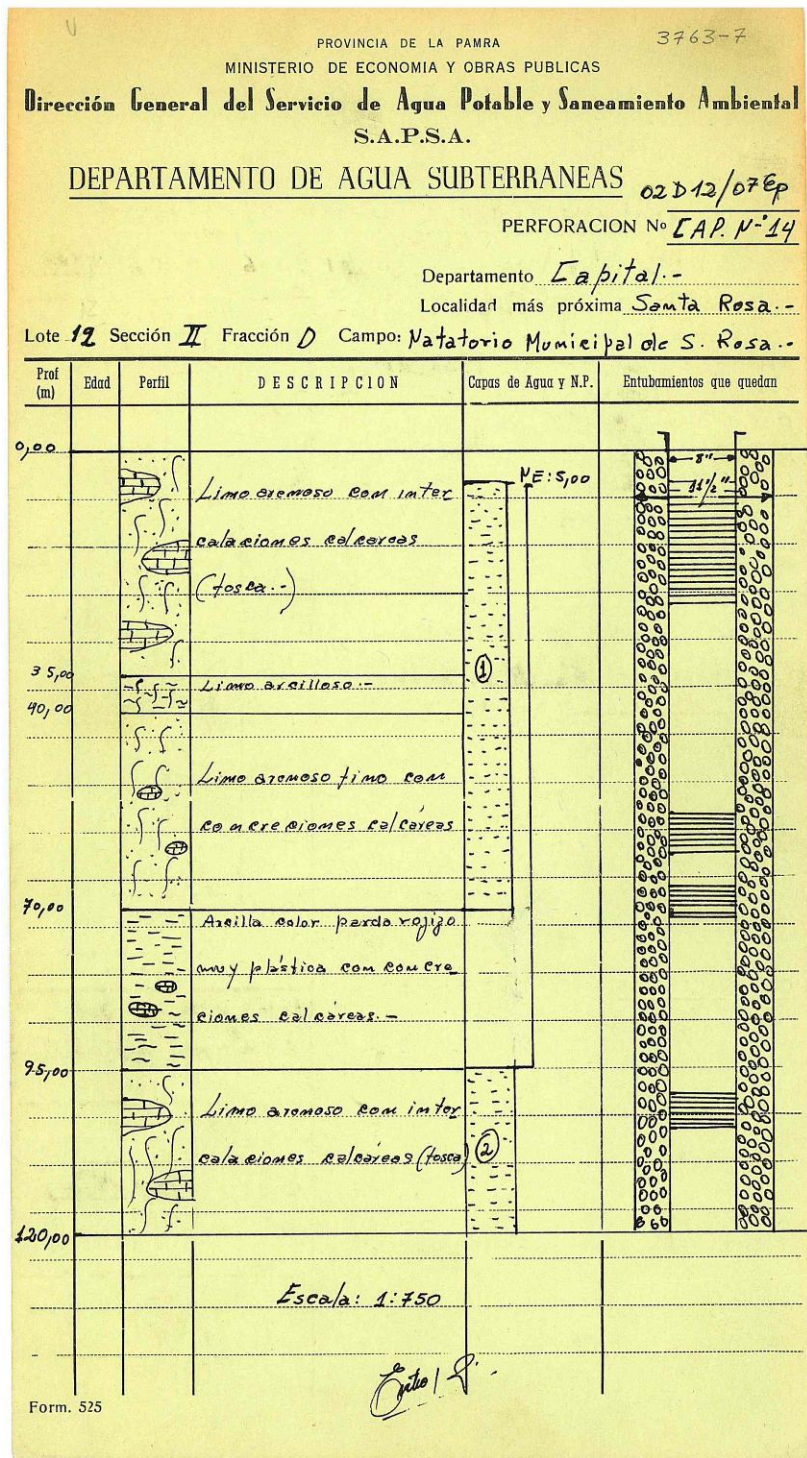 3763-7
PROVINCIA DE LA PAMRA
MINISTERIO DE ECONOMIA Y OBRAS PUBLICAS
Dirección General del Servicio de Agua Potable y Saneamiento Ambiental
S.A.P.S.A.
DEPARTAMENTO DE AGUA SUBTERRANEAS 02D12/07Ep
PERFORACION Nº CAP. Nº 14
Departamento Capital.-
Localidad más próxima Santa Rosa.-
Lote 12 Sección II Fracción D Campo: Natatorio Municipal de S. Rosa.-
Prof (m) Edad Perfil DESCRIPCION Capas de Agua y N.P. Entubamientos que quedan
0,00
8"
NE: 5,00
11 1/2"
Limo arenoso con inter
calaciones calcareas
(tosca.-)
35,00
①
Limo arcilloso.-
40,00
Limo arenoso fino con
concreciones calcáreas
70,00
Arcilla color parda rojizo
muy plástica con concre
ciones calcáreas.-
95,00
Limo arenoso con inter
calaciones calcáreas (tosca)
②
120,00
Escala: 1:750
Form. 525